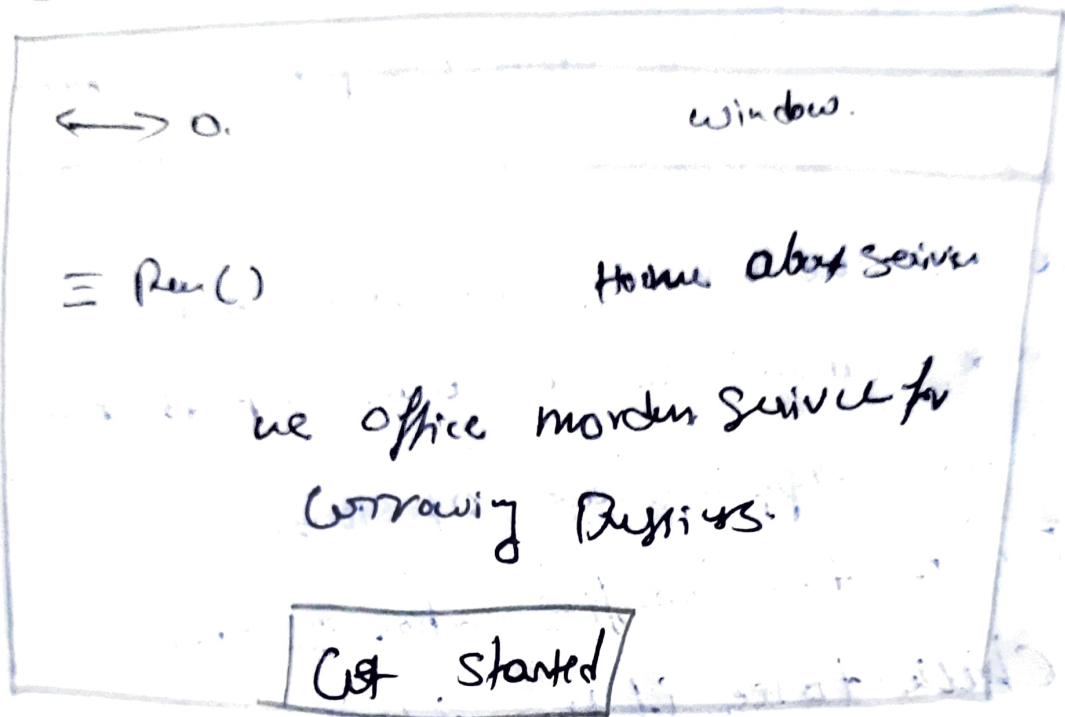 window.
≡ Ren()
Home about service
we office morden service for
Borrowing Bussines.
Get started